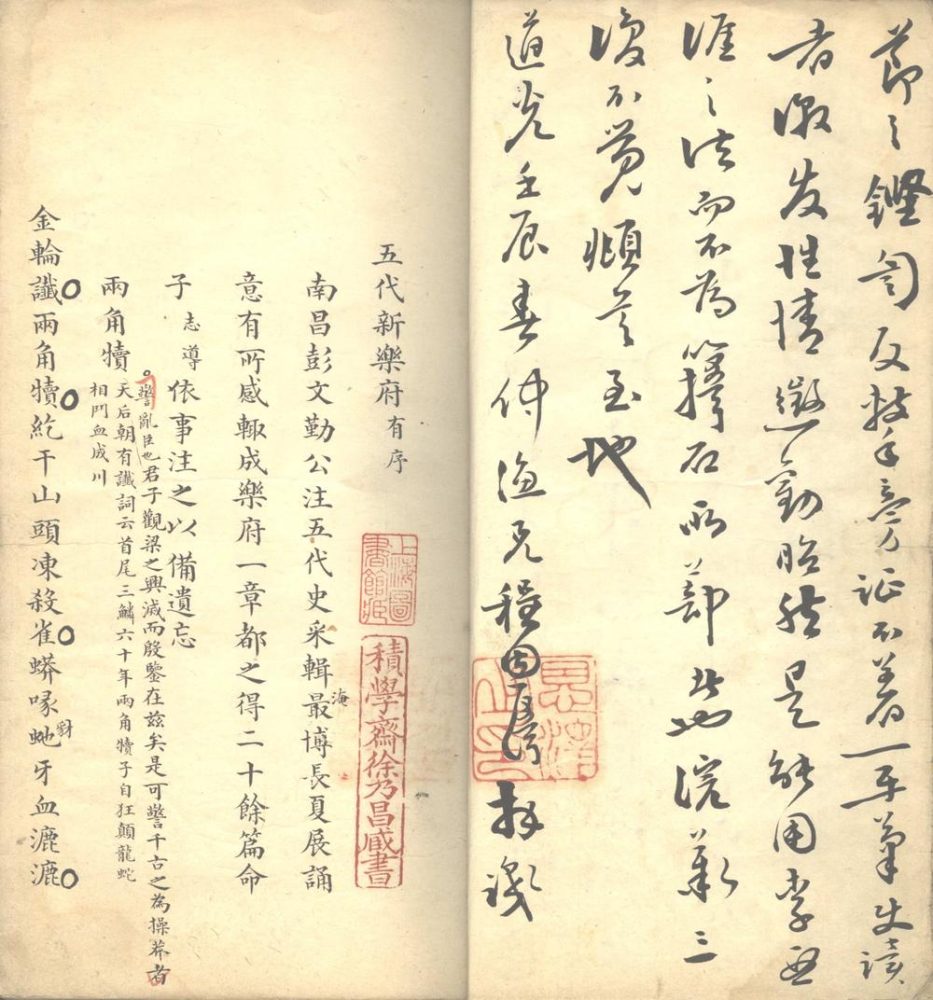 節之鏗訇反旁证不着一平筆史讀
者激发性情懲勸昭然是能用李西
涯之法而不為籜石所節也浣薇三
復不覺頫首至地
道光壬辰春仲兄程恩澤拜識
恩澤之印
上海圖書館藏
積學齋徐乃昌藏書
五代新樂府有序
南昌彭文勤公注五代史采輯最博長夏展誦
淹
意有所感輒成樂府一章都之得二十餘篇命
子志導依事注之以備遺忘
警亂臣也君子觀梁之興滅而殷鑒在茲矣是可警千古之為操莽者
兩角犢天后朝有讖詞云首尾三鱗六十年兩角犢子自狂顛龍蛇
相鬥血成川
金輪讖兩角犢紇干山頭凍殺雀蟒喙虵牙血漉漉
豺